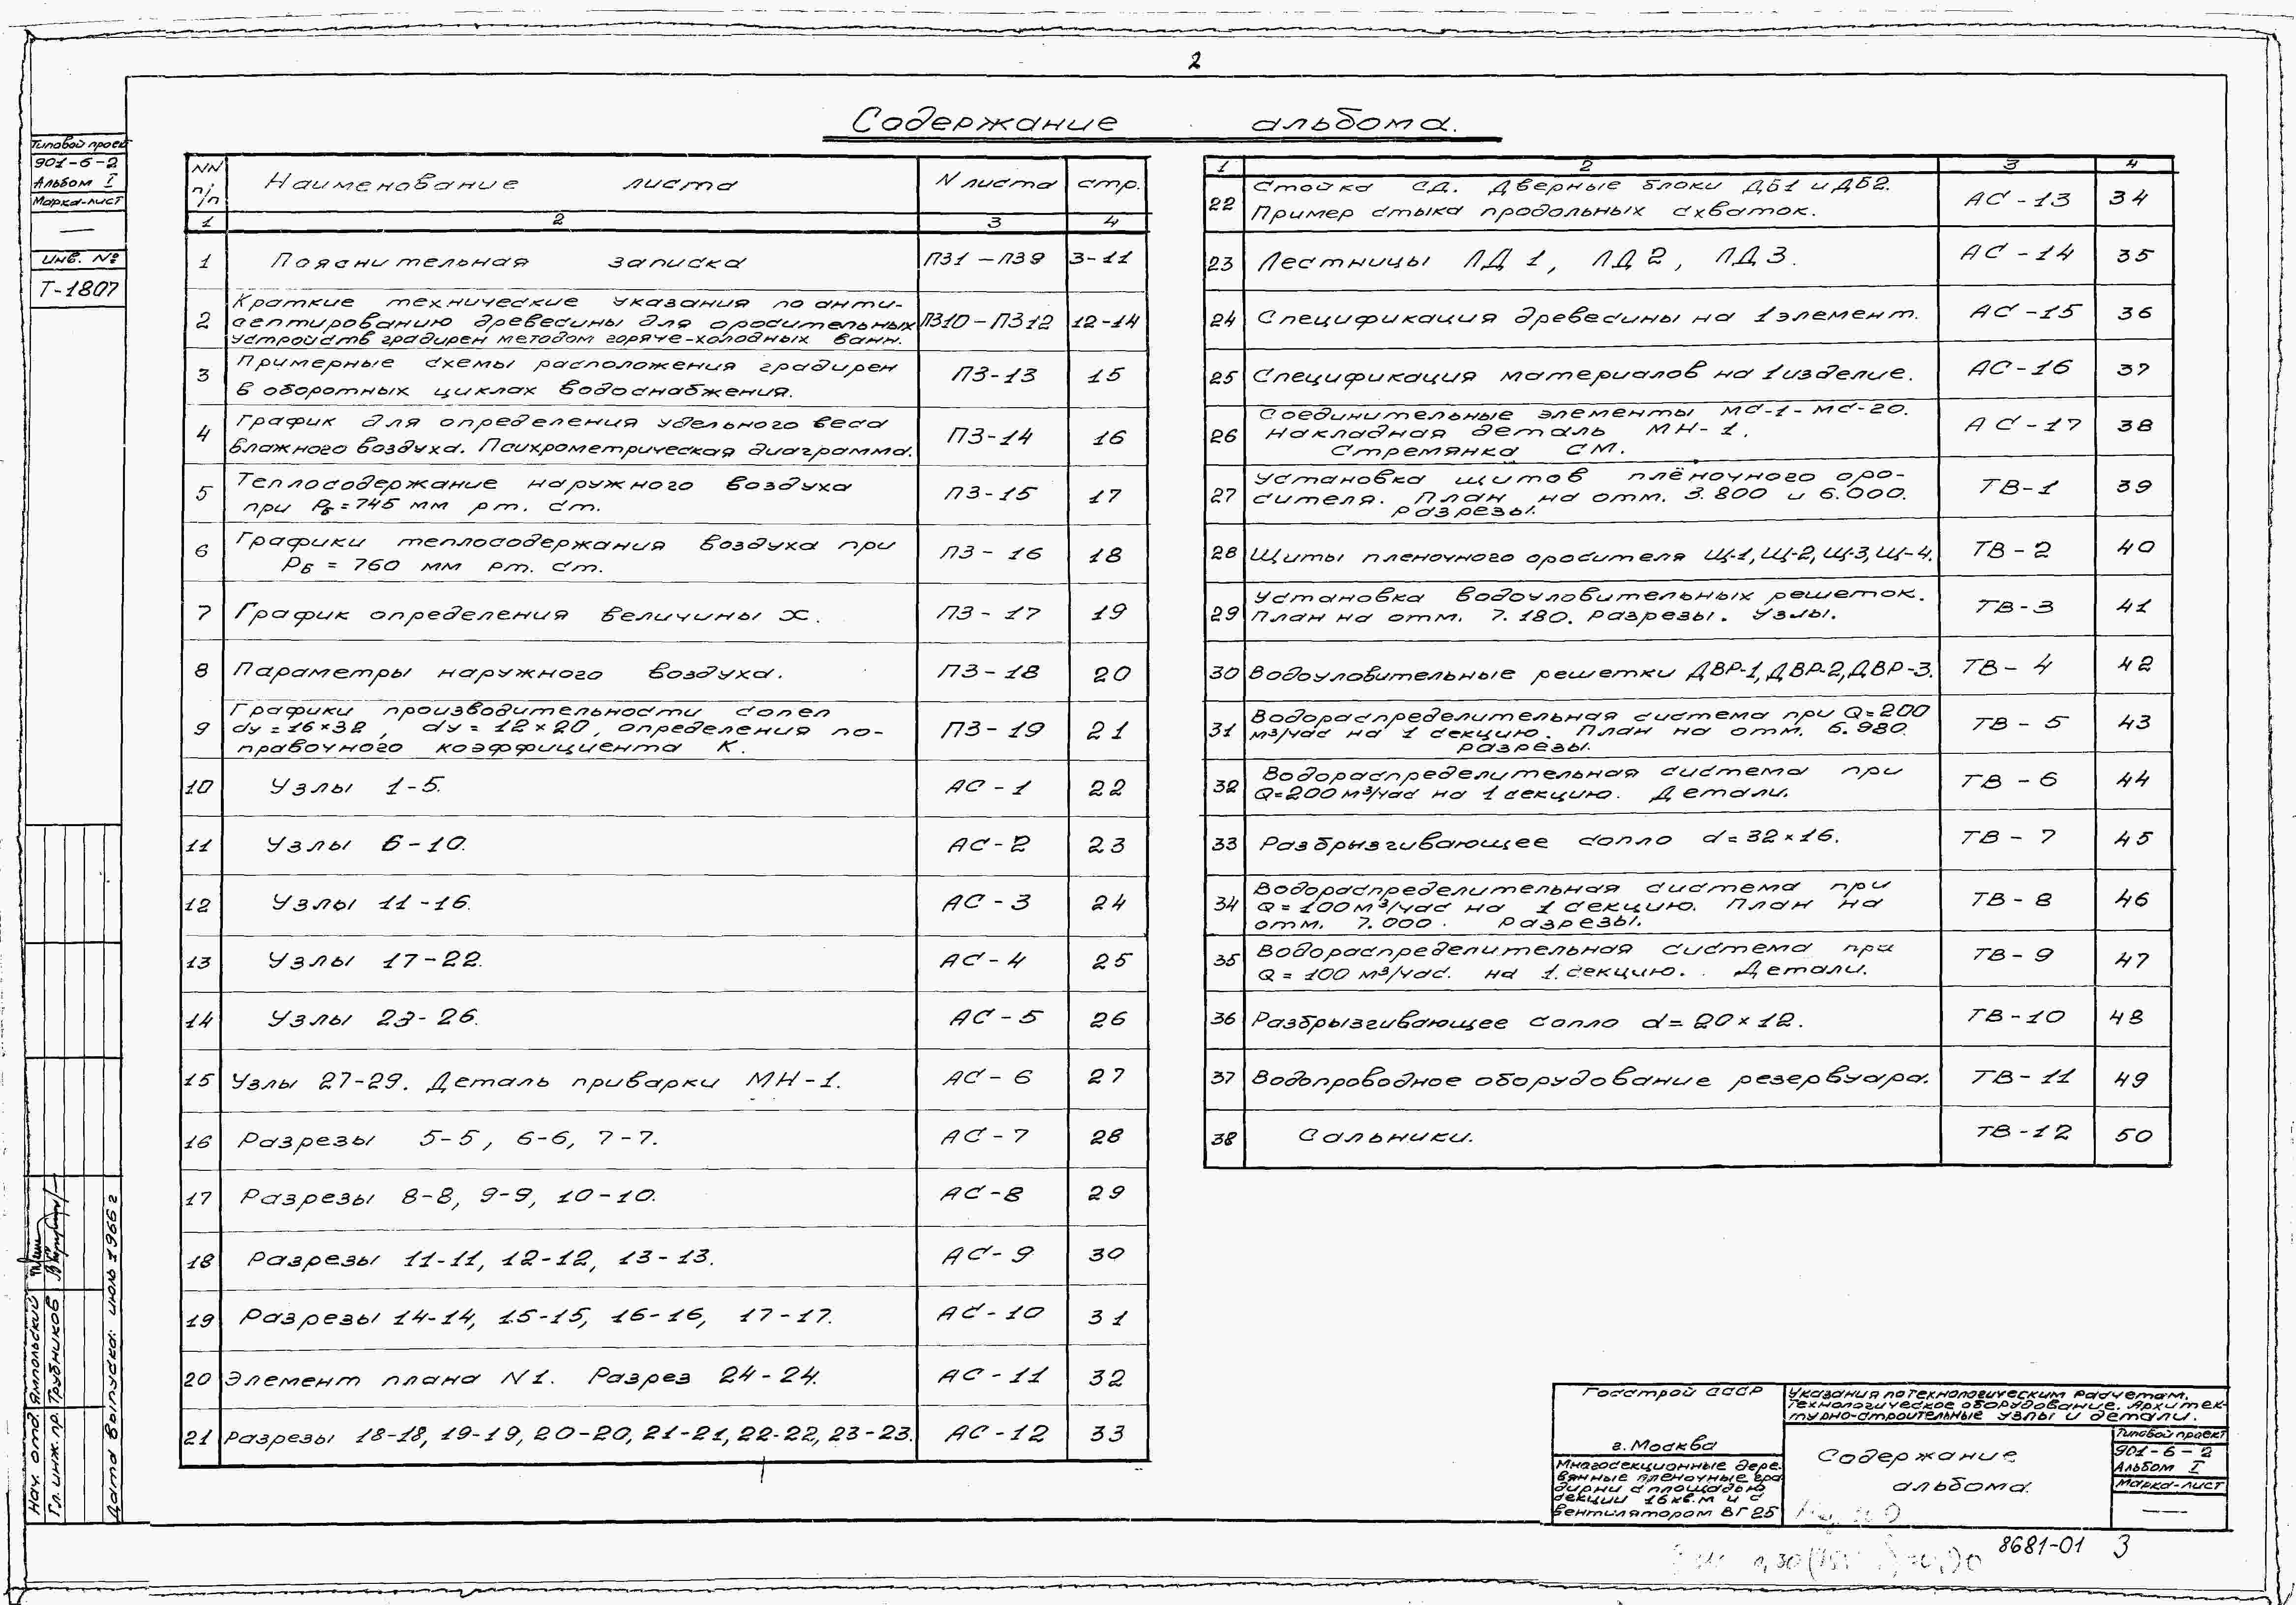 2
Содержание альбома.
Типовой проект
901-6-2
Альбом I
Марка-лист
—
Инв. №
Т-1807
NN п/п Наименование листа N листа стр.
1 2 3 4
1 Пояснительная записка ПЗ1-ПЗ9 3-11
2 Краткие технические указания по анти-
септированию древесины для оросительных ПЗ10-ПЗ12 12-14
устройств градирен методом горяче-холодных ванн.
3 Примерные схемы расположения градирен ПЗ-13 15
в оборотных циклах водоснабжения.
4 График для определения удельного веса ПЗ-14 16
влажного воздуха. Психрометрическая диаграмма.
5 Теплосодержание наружного воздуха ПЗ-15 17
при Рб=745 мм рт. ст.
6 Графики теплосодержания воздуха при ПЗ-16 18
Рб = 760 мм рт. ст.
7 График определения величины х. ПЗ-17 19
8 Параметры наружного воздуха. ПЗ-18 20
Графики производительности сопел
9 dу=16×32, dу=12×20, определения по- ПЗ-19 21
правочного коэффициента К.
10 Узлы 1-5. АС-1 22
11 Узлы 6-10. АС-2 23
12 Узлы 11-16. АС-3 24
13 Узлы 17-22. АС-4 25
14 Узлы 23-26. АС-5 26
15 Узлы 27-29. Деталь приварки МН-1. АС-6 27
16 Разрезы 5-5, 6-6, 7-7. АС-7 28
17 Разрезы 8-8, 9-9, 10-10. АС-8 29
18 Разрезы 11-11, 12-12, 13-13. АС-9 30
19 Разрезы 14-14, 15-15, 16-16, 17-17. АС-10 31
20 Элемент плана N1. Разрез 24-24. АС-11 32
21 Разрезы 18-18, 19-19, 20-20, 21-21, 22-22, 23-23. АС-12 33
1 2 3 4
22 Стойка СД. Дверные блоки ДБ1 и ДБ2. АС-13 34
Пример стыка продольных схваток.
23 Лестницы ЛД1, ЛД2, ЛД3. АС-14 35
24 Спецификация древесины на 1 элемент. АС-15 36
25 Спецификация материалов на 1 изделие. АС-16 37
Соединительные элементы МС-1-МС-20.
26 Накладная деталь МН-1. АС-17 38
Стремянка СМ.
Установка щитов плёночного оро-
27 сителя. План на отм. 3.800 и 6.000. ТВ-1 39
Разрезы.
28 Щиты пленочного оросителя Щ-1, Щ-2, Щ-3, Щ-4. ТВ-2 40
Установка водоуловительных решеток.
29 План на отм. 7.180. Разрезы. Узлы. ТВ-3 41
30 Водоуловительные решетки ДВР-1, ДВР-2, ДВР-3. ТВ-4 42
Водораспределительная система при Q=200
31 м³/час на 1 секцию. План на отм. 6.980. ТВ-5 43
Разрезы.
32 Водораспределительная система при ТВ-6 44
Q=200 м³/час на 1 секцию. Детали.
33 Разбрызгивающее сопло d=32×16. ТВ-7 45
Водораспределительная система при
34 Q=100 м³/час на 1 секцию. План на ТВ-8 46
отм. 7.000. Разрезы.
35 Водораспределительная система при ТВ-9 47
Q=100 м³/час. на 1 секцию. Детали.
36 Разбрызгивающее сопло d=20×12. ТВ-10 48
37 Водопроводное оборудование резервуара. ТВ-11 49
38 Сальники. ТВ-12 50
Нач. отд. Ямпольский
Гл. инж. пр. Трубников
Дата выпуска: июль 1966 г
Госстрой СССР
г. Москва
Многосекционные дере-
вянные пленочные гра
дирни с площадью
секции 16 кв.м и с
вентилятором ВГ 25
Указания по технологическим расчетам.
Технологическое оборудование. Архитек-
турно-строительные узлы и детали.
Содержание
альбома.
Типовой проект
901-6-2
Альбом I
Марка-лист
—
8681-01 3